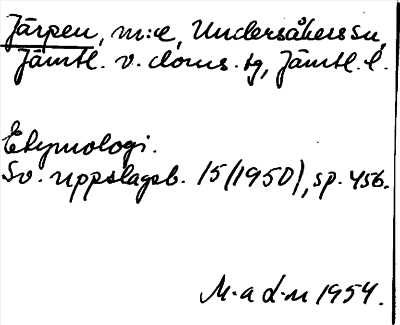 Järpen, m:e, Undersåkers sn,
Jämtl. v. doms. tg, Jämtl. l.
Etymologi.
Sv. uppslagsb. 15 (1950), sp. 456.
M-a d-n 1954.